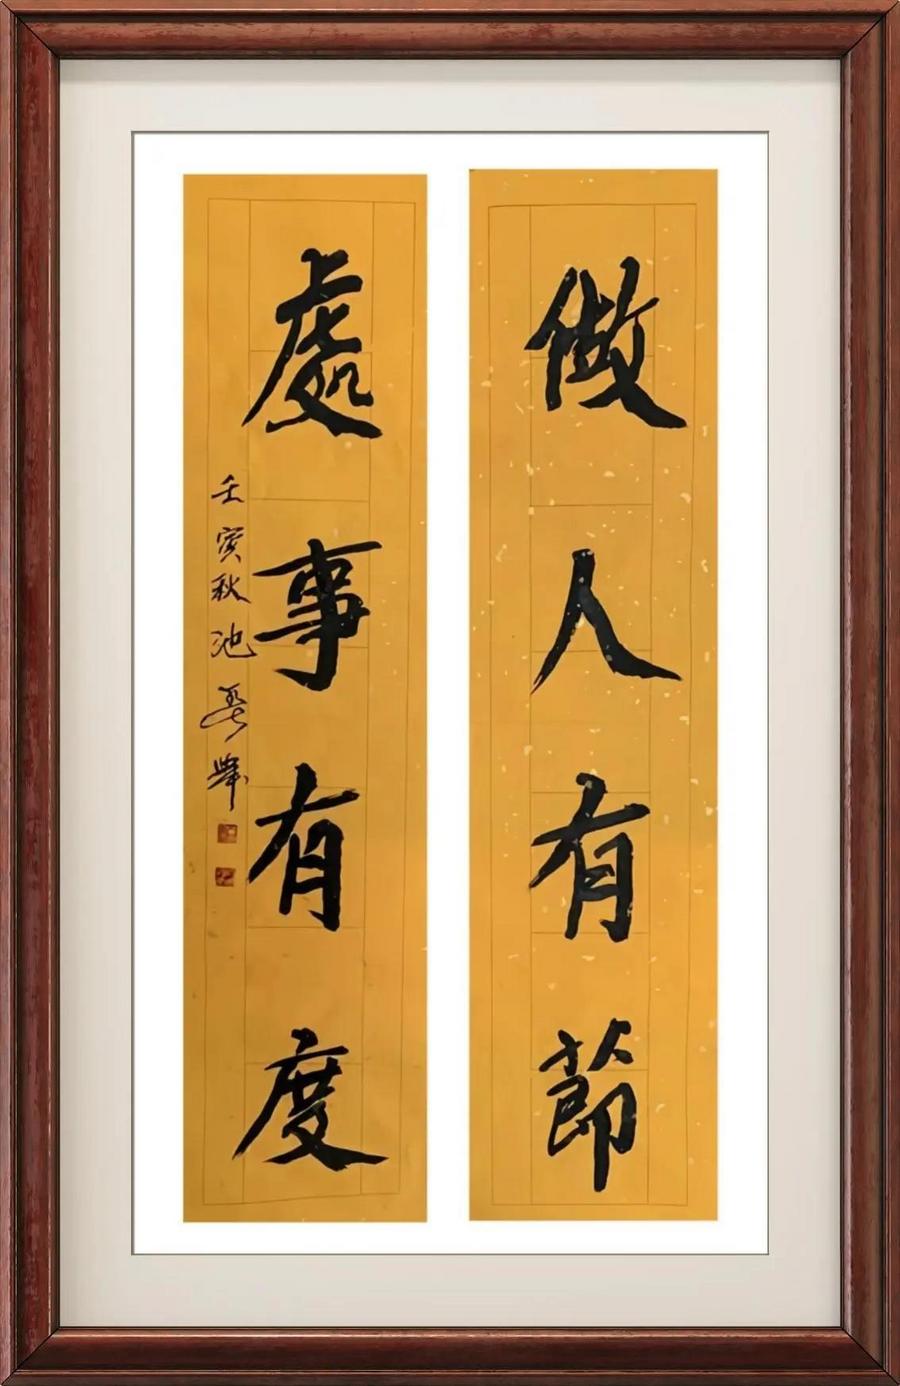 做人有節
處事有度
壬寅秋池